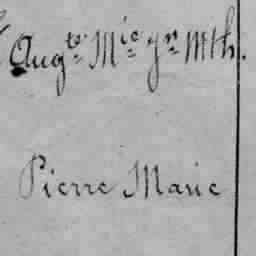 Augte Mie Jn Mth.
Pierre Marie